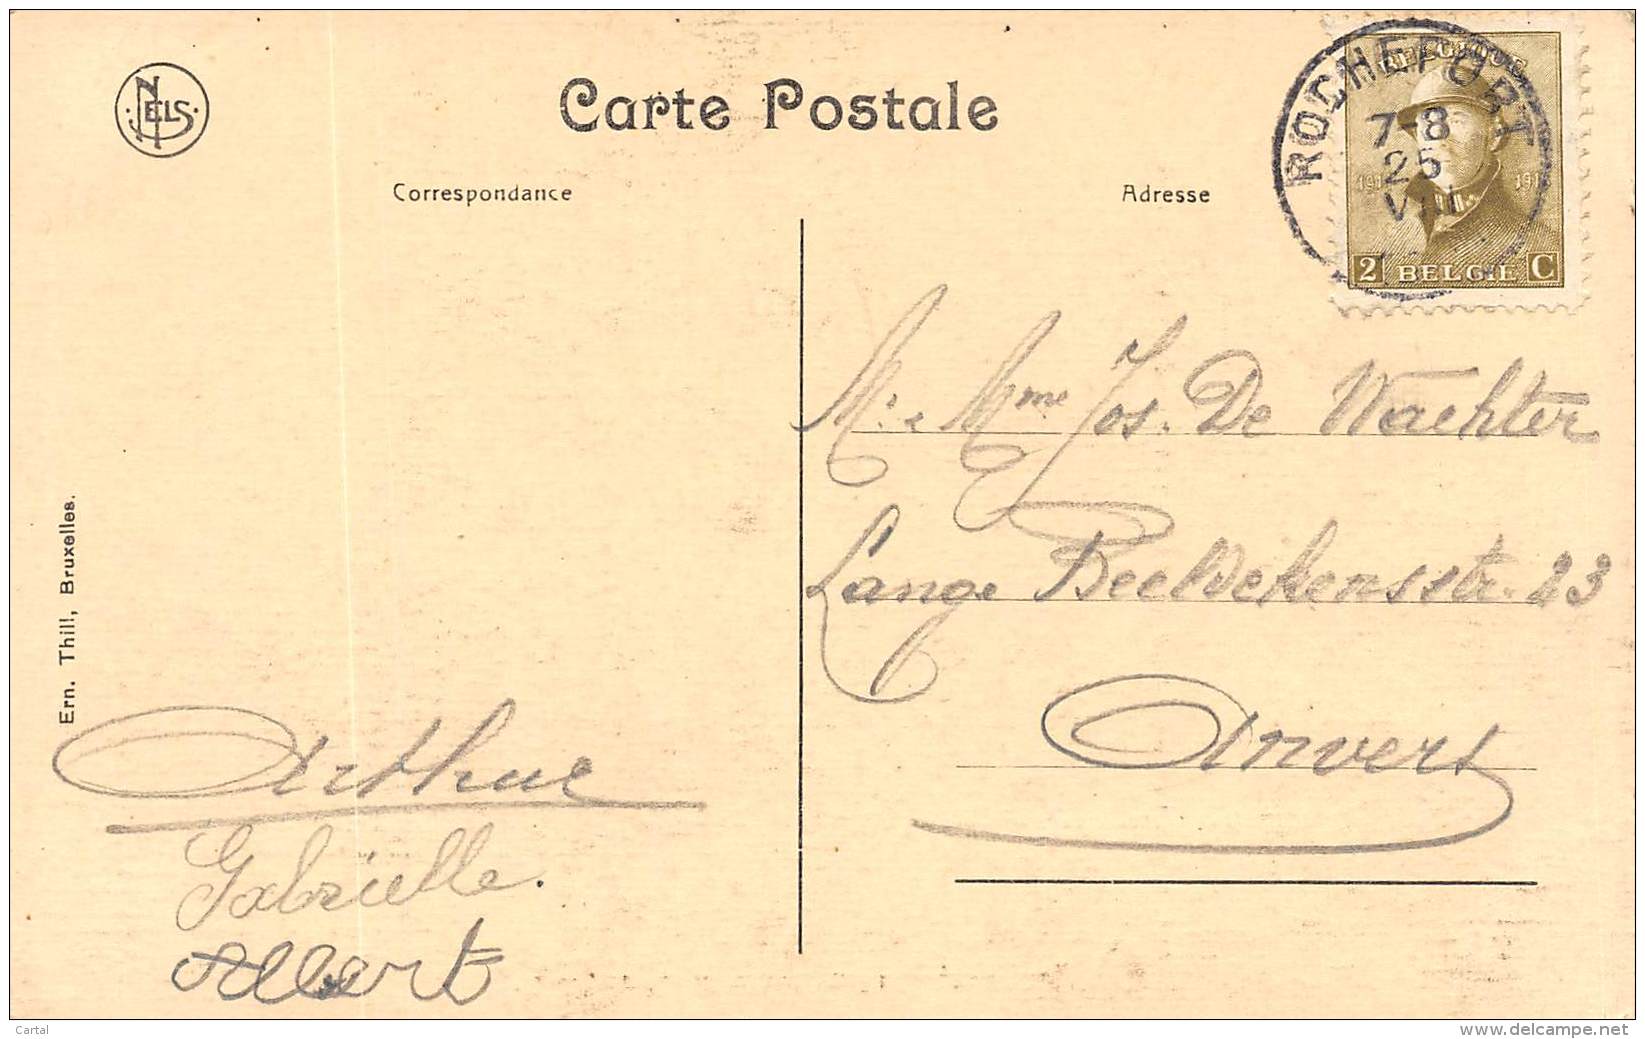 NELS
Carte Postale
Correspondance
Adresse
ROCHEFORT
7-8
25
BELGIQUE
2 BELGIE C
M. & Mme Jos. De Wachter
Lange Beeldekensstr. 23
Anvers
Ern. Thill, Bruxelles.
Arthur
Gabrielle.
Albert
Cartal
www.delcampe.net